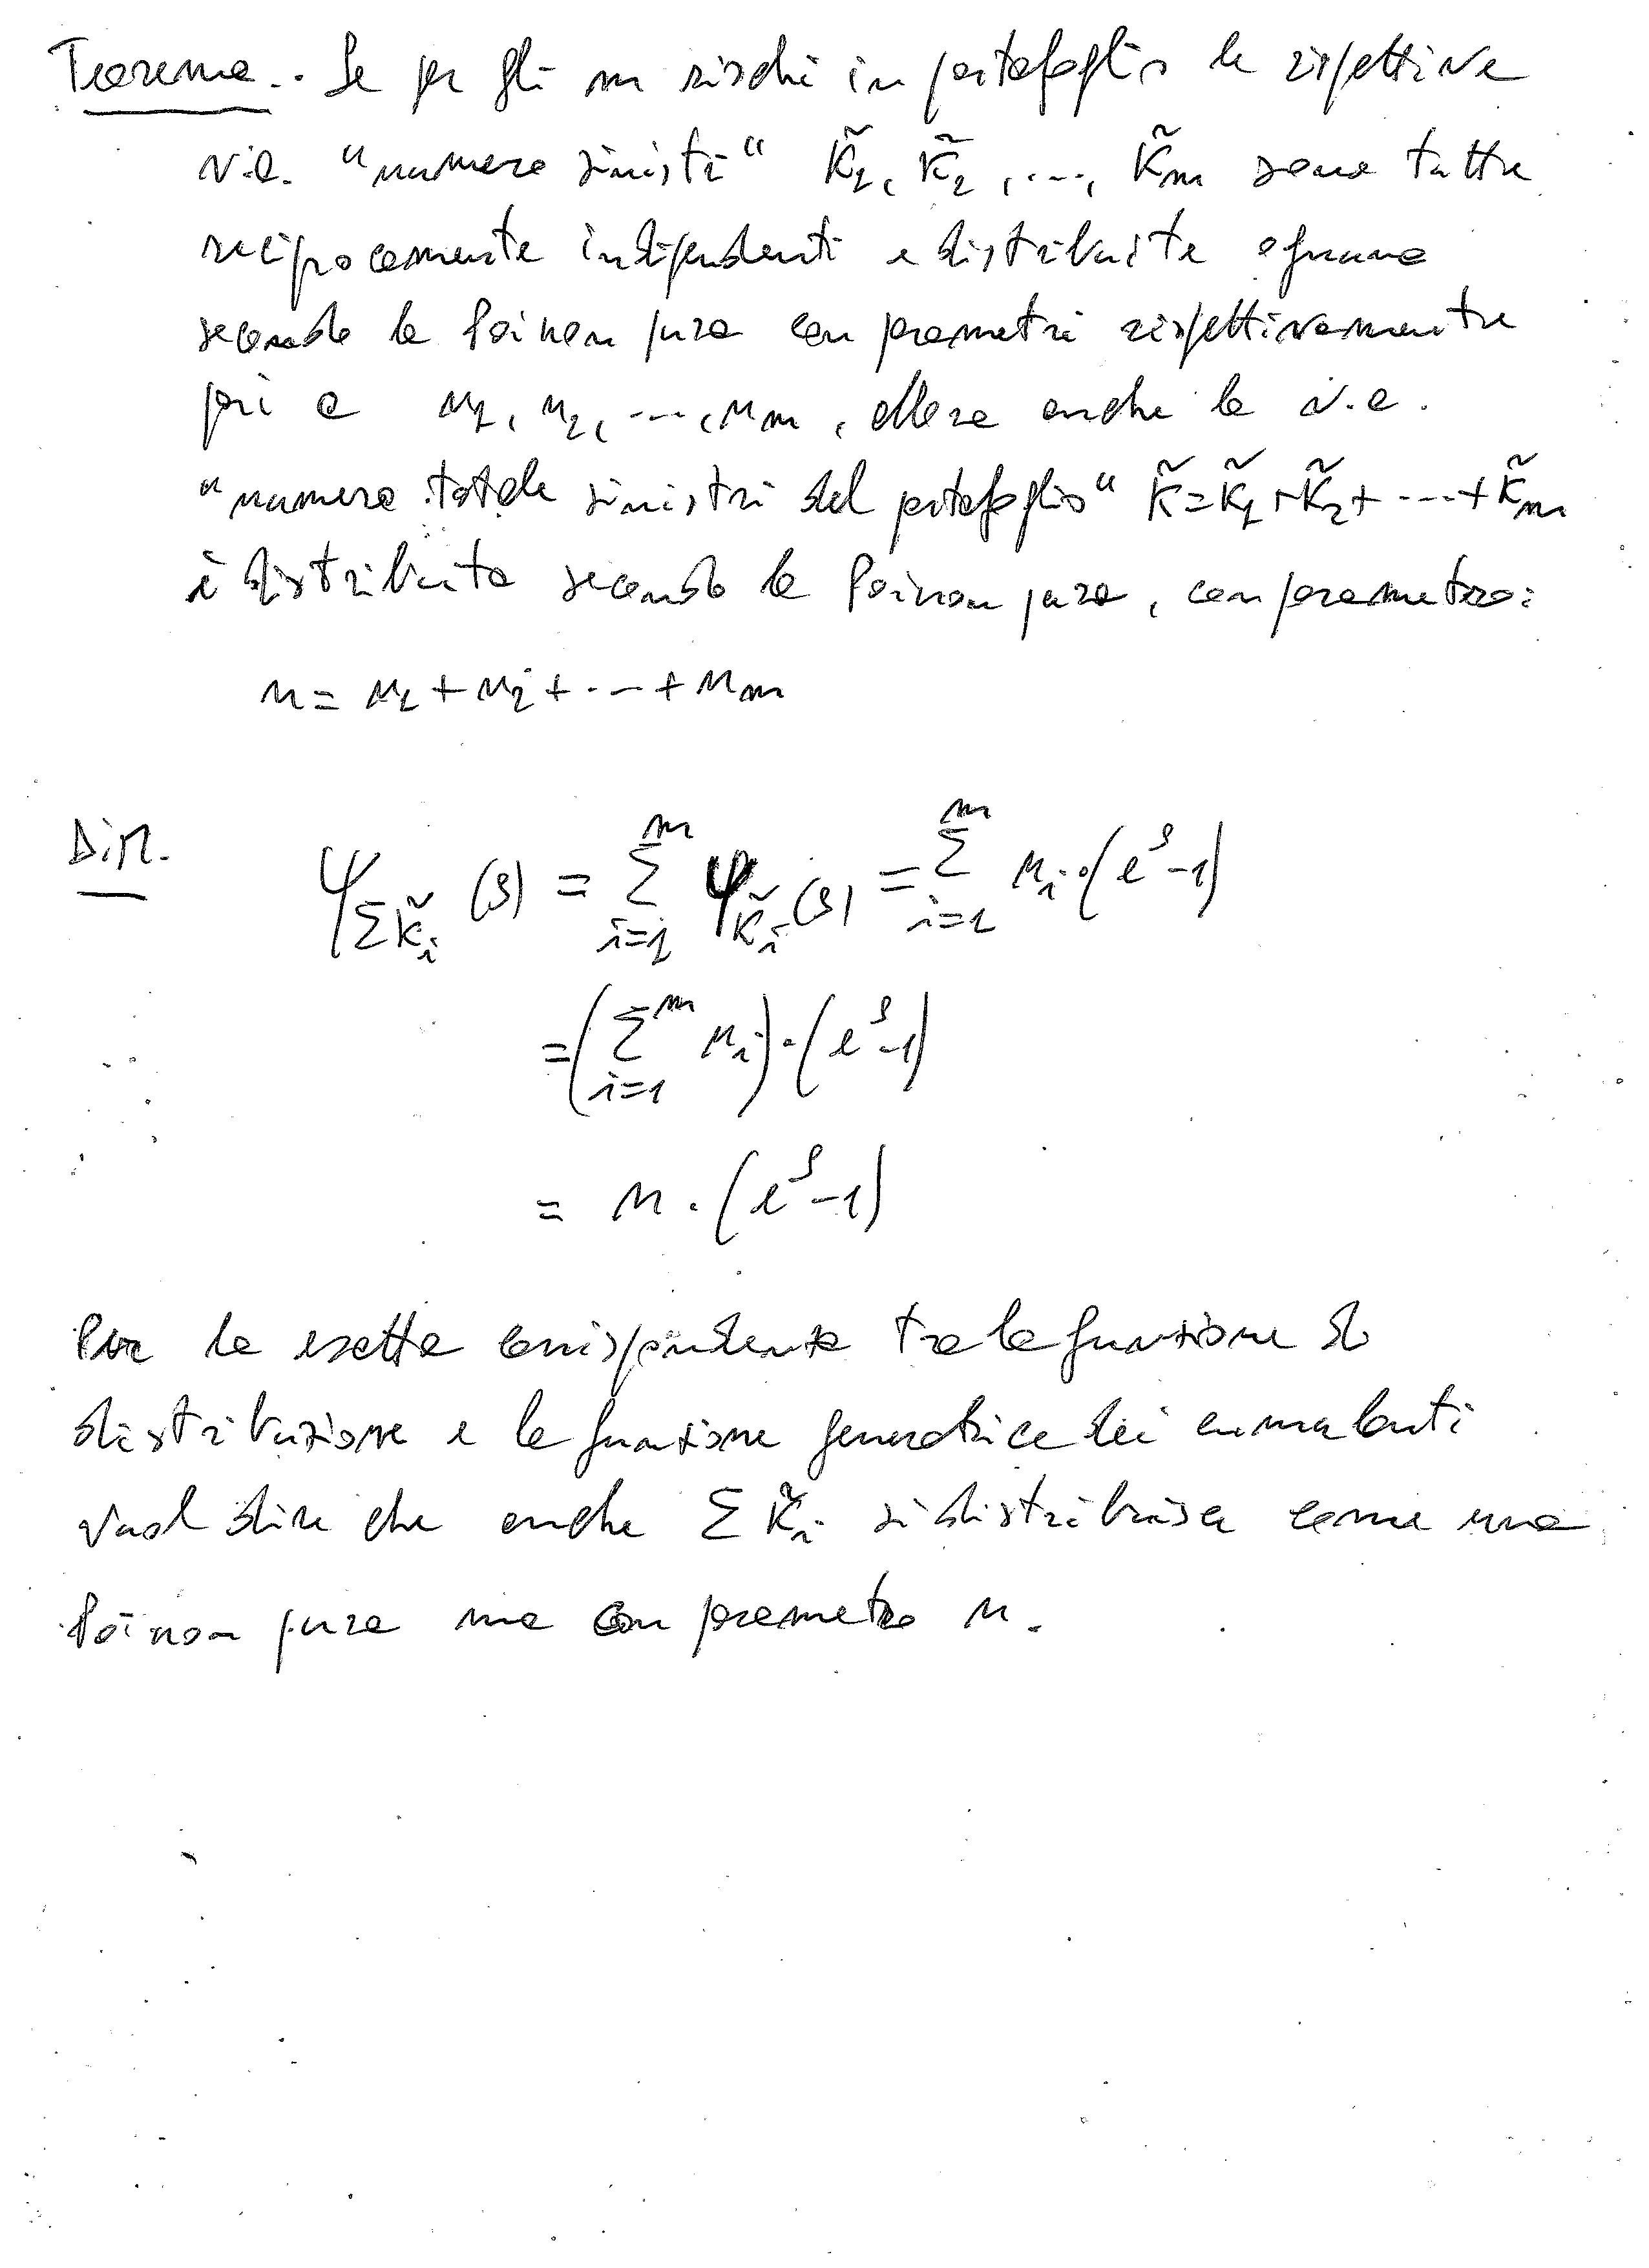 Teorema. Se per gli m rischi in portafoglio le rispettive
v.a. "numero sinistri" K̃1, K̃2, ..., K̃m sono tutte
reciprocamente indipendenti e distribuite ognuna
secondo la Poisson pura con parametri rispettivamente
pari a n1, n2, ..., nm, allora anche la v.a.
"numero totale sinistri del portafoglio" K̃=K̃1+K̃2+ ... +K̃m
è distribuita secondo la Poisson pura, con parametro:
n = n1 + n2 + ... + nm
Dim. Ψ_ΣK̃i (s) = Σ_{i=1}^{m} Ψ_K̃i (s) = Σ_{i=1}^{m} ni · (e^s - 1)
= (Σ_{i=1}^{m} ni) · (e^s - 1)
= n · (e^s - 1)
Per la esatta corrispondenza tra la funzione di
distribuzione e la funzione generatrice dei cumulanti
vuol dire che anche Σ K̃i si distribuisce come una
Poisson pura ma con parametro n.